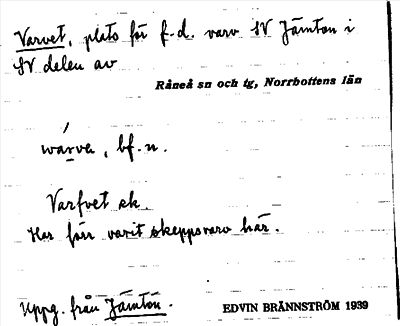 Varvet, plats för f.d. varv SV Jämton i
SV delen av
Råneå sn och tg, Norrbottens län
wárve, bf. n.
Varfvet ek.
Har förr varit skeppsvarv här.
Uppg. från Jämton.
EDVIN BRÄNNSTRÖM 1939